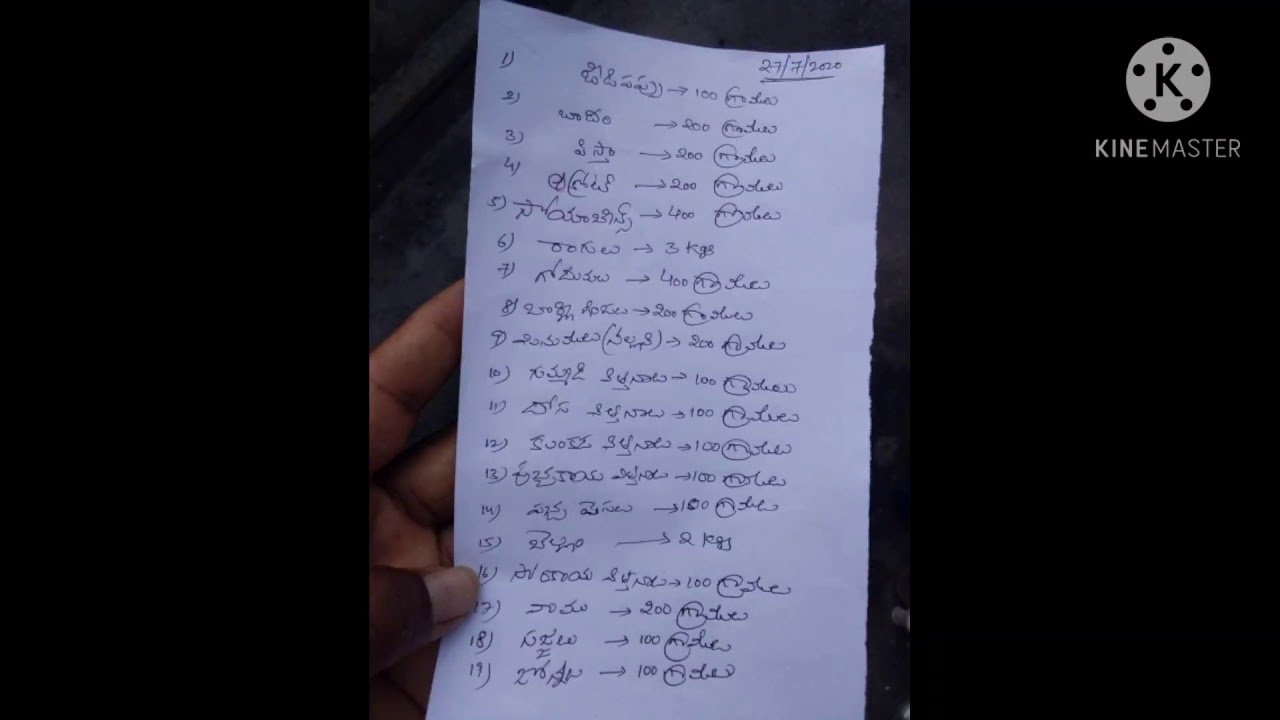 27/7/2020
1) జీడిపప్పు → 100 గ్రాములు
2) బాదం → 200 గ్రాములు
3) పిస్తా → 200 గ్రాములు
4) → 200 గ్రాములు
5) సోయాబీన్స్ → 400 గ్రాములు
6) రాగులు → 3 Kgs
7) గోదుమలు → 400 గ్రాములు
8) బార్లీ గింజలు → 200 గ్రాములు
9) మినుములు (నల్లవి) → 200 గ్రాములు
10) గుమ్మడి విత్తనాలు → 100 గ్రాములు
11) దోస విత్తనాలు → 100 గ్రాములు
12) విత్తనాలు → 100 గ్రాములు
13) విత్తనాలు → 100 గ్రాములు
14) పచ్చ పెసలు → 100 గ్రాములు
15) బెల్లం → 2 Kgs
16) విత్తనాలు → 100 గ్రాములు
17) వాము → 200 గ్రాములు
18) సజ్జలు → 100 గ్రాములు
19) జొన్నలు → 100 గ్రాములు
K
KINEMASTER